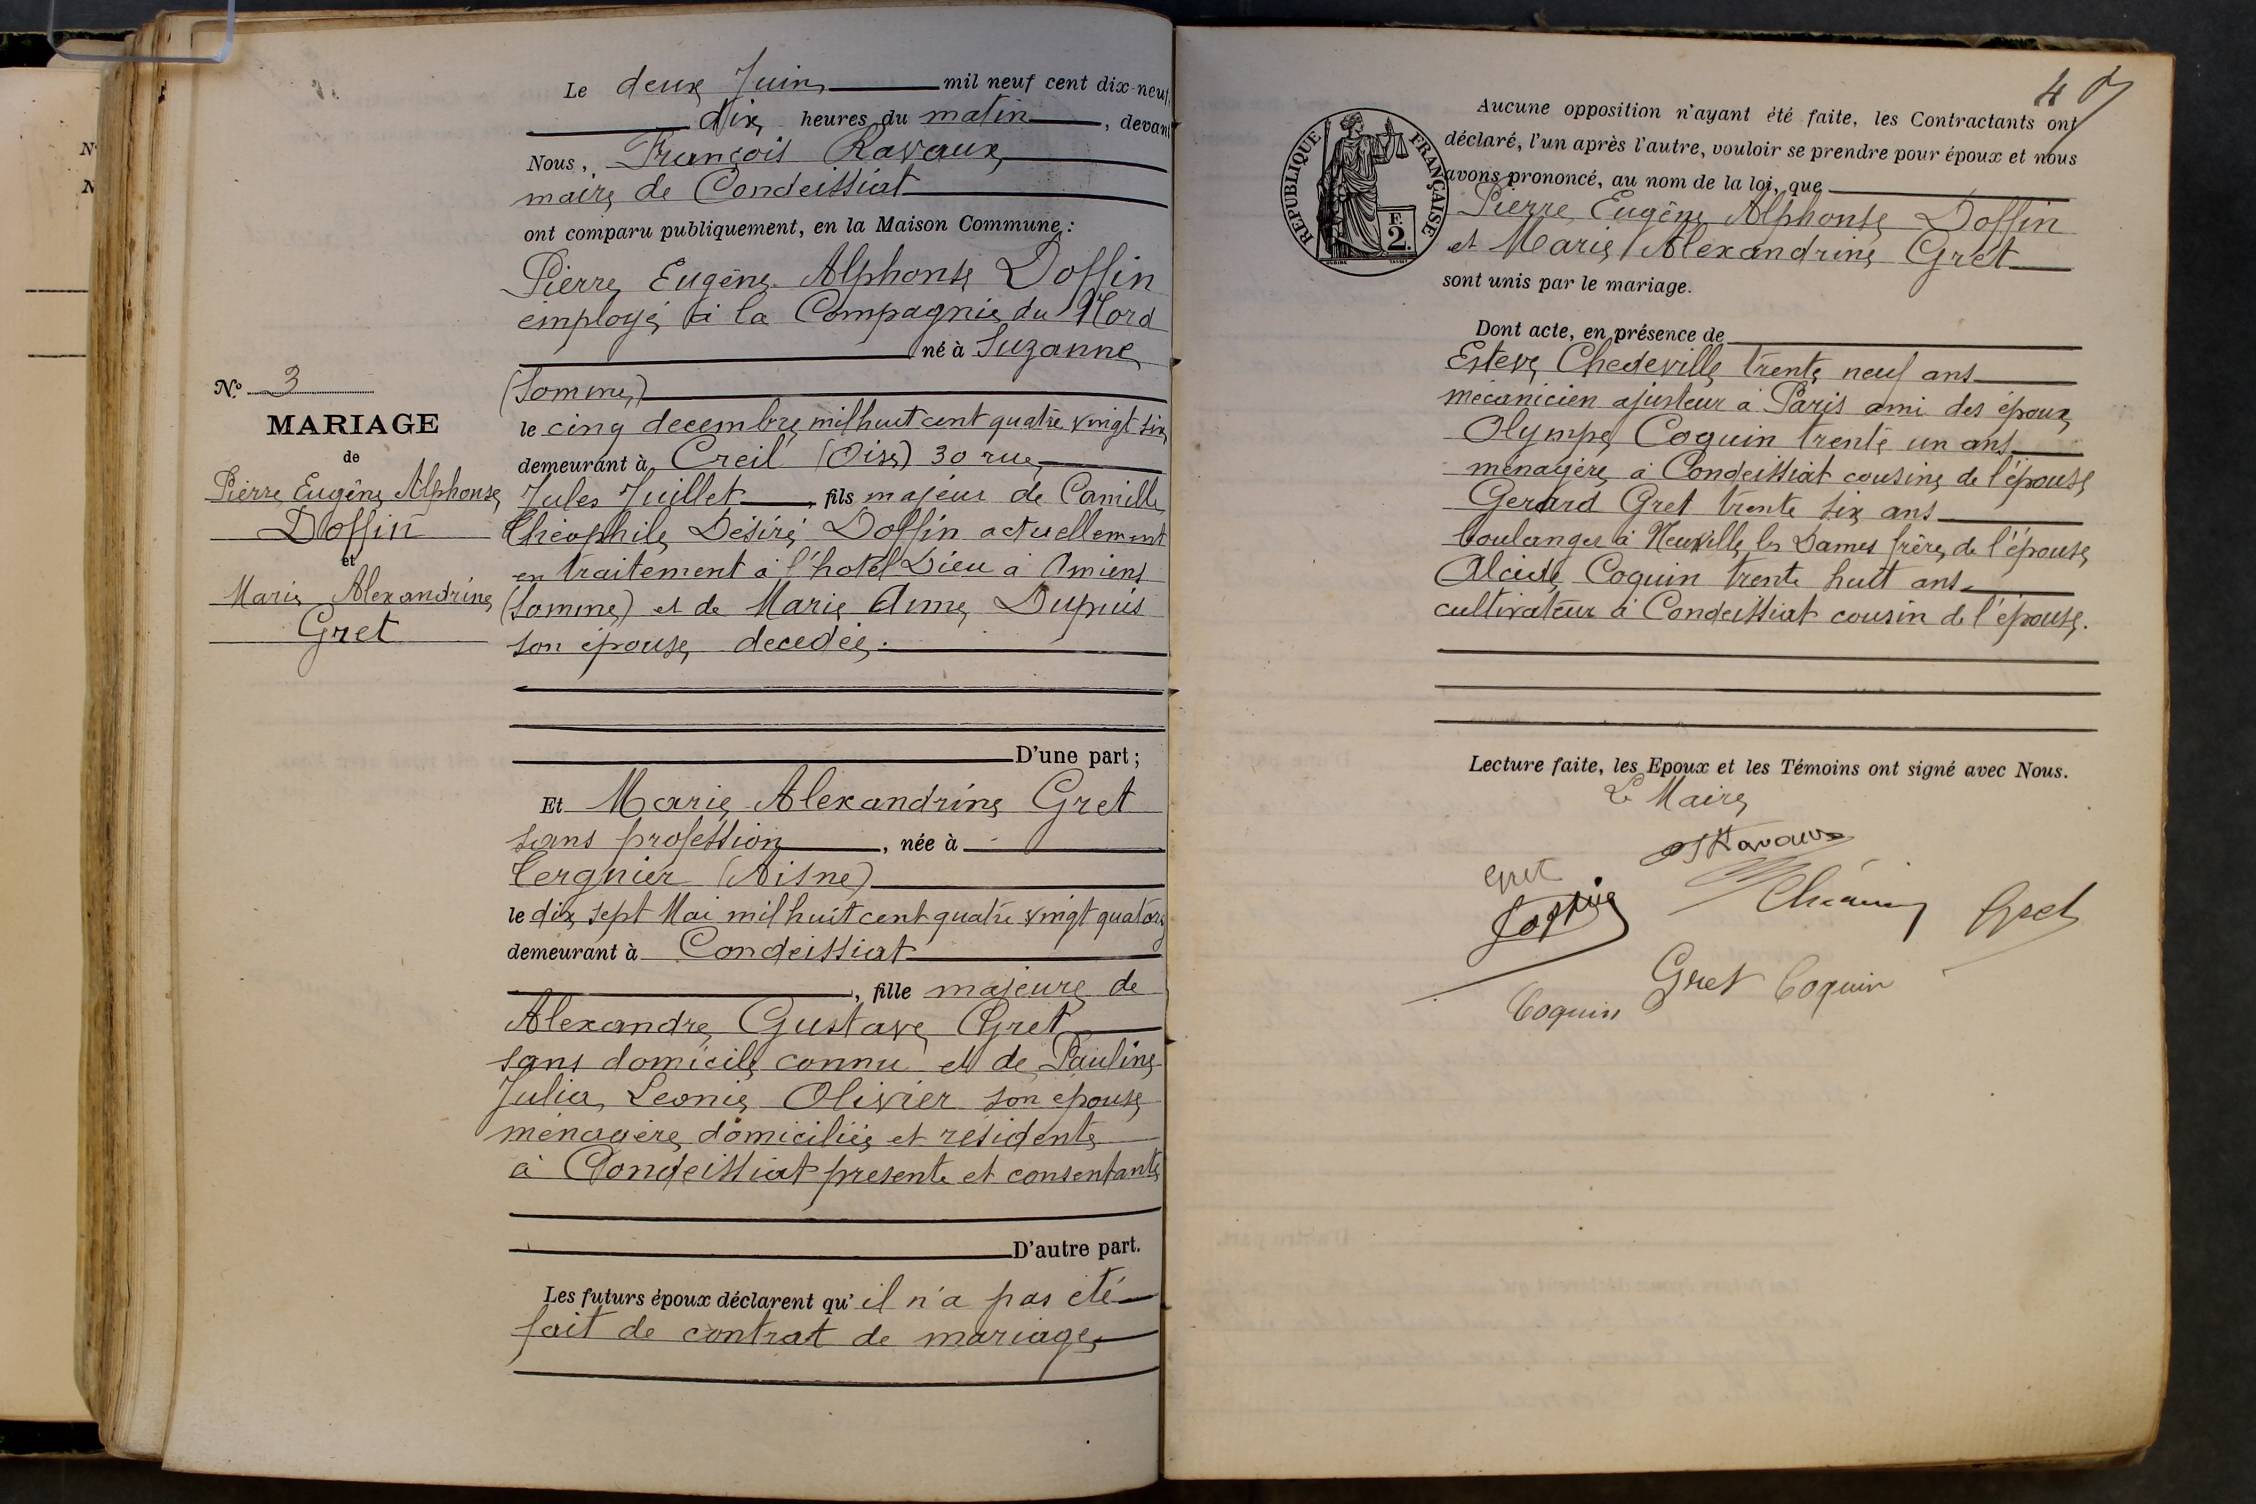 N
N
N° 3
MARIAGE
de
Pierre Eugène Alphonse
Doffin
et
Marie Alexandrine
Gret
Le deux Juin mil neuf cent dix-neuf,
dix heures du matin, devant
Nous, François Ravaux
maire de Condeissiat
ont comparu publiquement, en la Maison Commune :
Pierre Eugène Alphonse Doffin
employé à la Compagnie du Nord
né à Suzanne
(Somme)
le cinq decembre mil huit cent quatre vingt six
demeurant à Creil (Oise) 30 rue
Jules Juillet, fils majeur de Camille
Théophile Désiré Doffin actuellement
en traitement à l'hotel Dieu à Amiens
(Somme) et de Marie Aime Dupuis
son épouse decedée.
D'une part ;
Et Marie Alexandrine Gret
sans profession, née à
Tergnier (Aisne)
le dix sept Mai mil huit cent quatre vingt quatorze
demeurant à Condeissiat
, fille majeure de
Alexandre Gustave Gret
sans domicile connu et de Pauline
Julia Leonie Olivier son épouse
menagère domiciliée et résidente
à Condeissiat presente et consentante
D'autre part.
Les futurs époux déclarent qu' il n'a pas été
fait de contrat de mariage
4
RÉPUBLIQUE FRANÇAISE
F.
2.
Aucune opposition n'ayant été faite, les Contractants ont
déclaré, l'un après l'autre, vouloir se prendre pour époux et nous
avons prononcé, au nom de la loi, que
Pierre Eugène Alphonse Doffin
et Marie Alexandrine Gret
sont unis par le mariage.
Dont acte, en présence de
Esteve Chedeville trente neuf ans
mécanicien ajusteur à Paris ami des époux
Olympe Coquin trente un ans
menagère à Condeissiat cousine de l'épouse
Gerard Gret trente six ans
boulanger à Neuville les Dames frère de l'épouse
Alcide Coquin trente huit ans
cultivateur à Condeissiat cousin de l'épouse.
Lecture faite, les Epoux et les Témoins ont signé avec Nous.
Le Maire
Ravaux
Gret
Doffin
Gret
Gret Coquin
Coquin